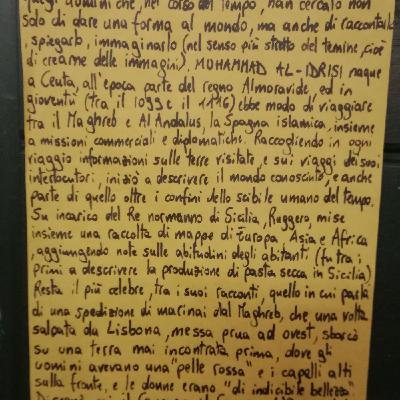 uomini che, nel corso del tempo, han cercato non
solo di dare una forma al mondo, ma anche di raccontarlo
, spiegarlo, immaginarlo (nel senso più stretto del temine, cioè
di crearne delle immagini). MUHAMMAD AL-IDRISI naque
a Ceuta, all'epoca parte del regno Almoravide, ed in
gioventù (tra il 1099 e il 1116) ebbe modo di viaggiare
tra il Maghreb e Al Andalus, la Spagna islamica, insieme
a missioni commerciali e diplomatiche. Raccogliendo in ogni
viaggio informazioni sulle terre visitate, e sui viaggi dei suoi
interlocutori, iniziò a descrivere il mondo conosciuto, e anche
parte di quello oltre i confini dello scibile umano del tempo.
Su incarico del Re normanno di Sicilia, Ruggero, mise
insieme una raccolta di mappe di Europa, Asia e Africa
, aggiungendo note sulle abitudini degli abitanti (fu tra i
primi a descrivere la produzione di pasta secca in Sicilia)
Resta il più celebre, tra i suoi racconti, quello in cui parla
di una spedizione di marinai dal Maghreb, che, una volta
salpata da Lisbona, messa prua ad ovest, sbarcò
su una terra mai incontrata prima, dove gli
uomini avevano una "pelle rossa" e i capelli alti
sulla fronte, e le donne erano "di indicibile bellezza"